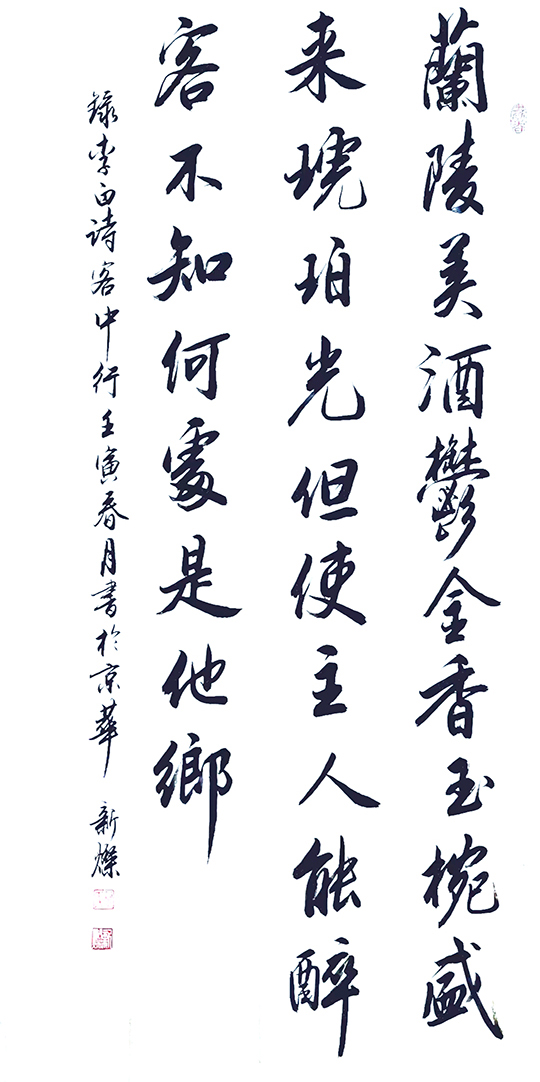 蘭陵美酒鬱金香玉椀盛
来琥珀光但使主人能醉
客不知何處是他鄉
録李白詩客中行壬寅春月書於京華 新燦